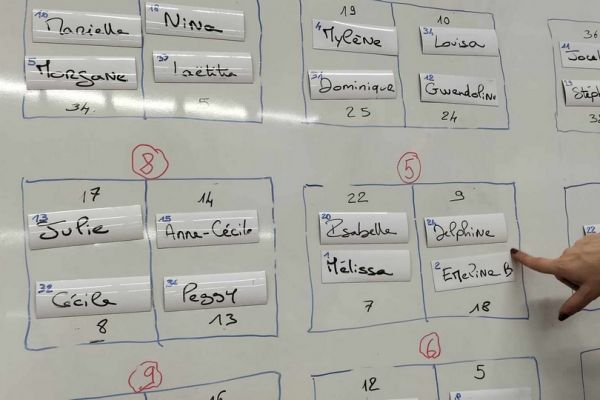 Marielle
16 Nina
5 Morgane
Laëtitia
34
5
19
10
4 Mylène
Louisa
34 Dominique
12 Gwendoline
25
24
36
11
13
8
17
14
13 Julie
15 Anne-Cécile
32 Cécile
Peggy
8
13
5
22
9
20 Isabelle
24 Delphine
1 Mélissa
2 Emeline B
7
18
22
9
6
12
5